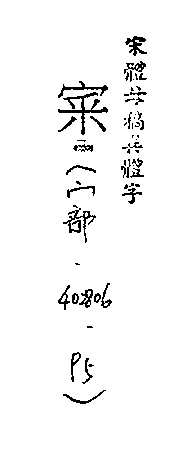 宋體母稿異體字
（宀部-40806-P5）